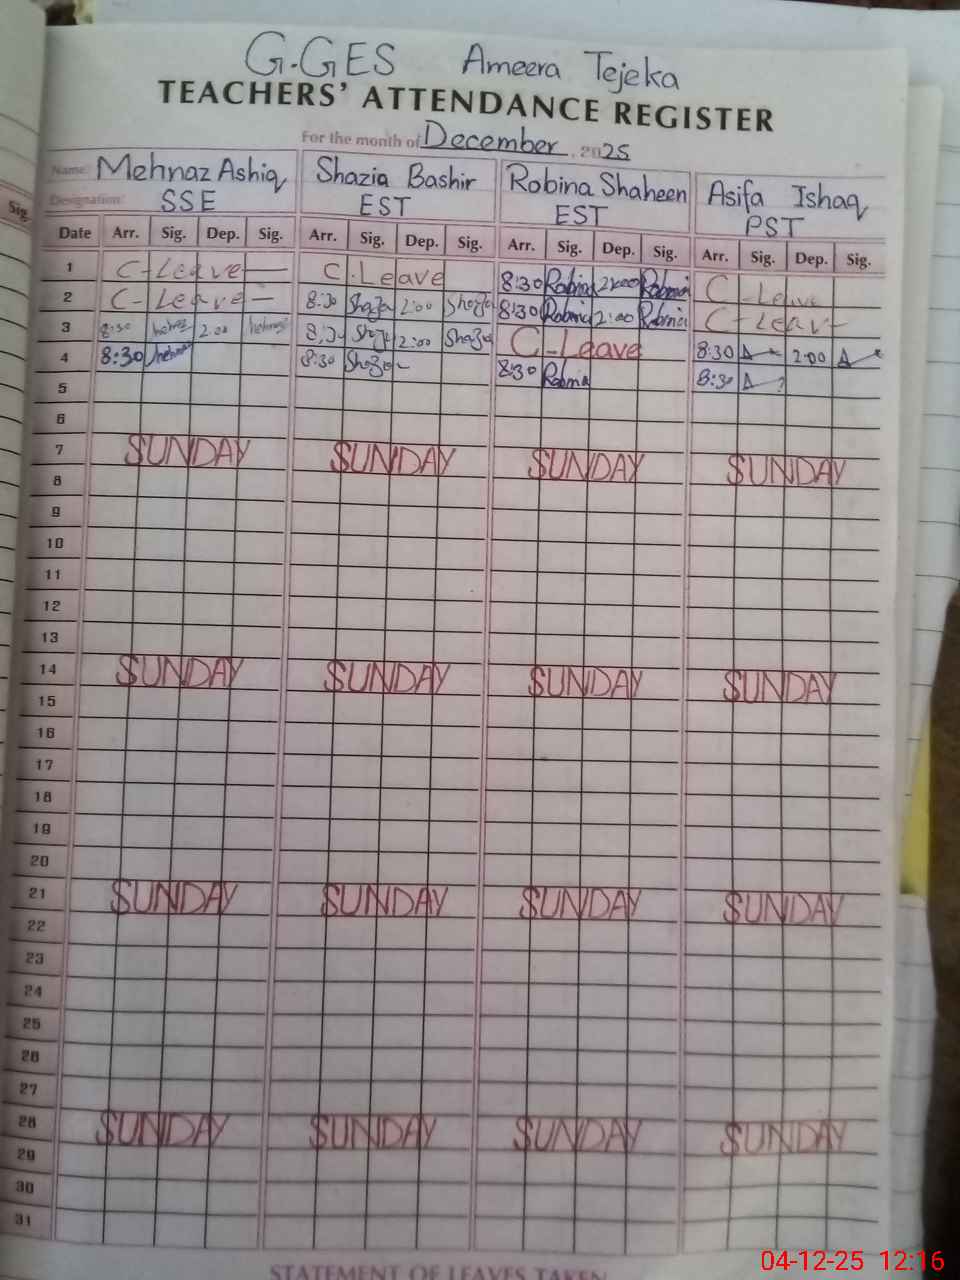 G.GES Ameera Tejeka
TEACHERS' ATTENDANCE REGISTER
For the month of December, 2025
Name: Mehnaz Ashiq Shazia Bashir Robina Shaheen Asifa Ishaq
Designation: SSE EST EST PST
Date Arr. Sig. Dep. Sig. Arr. Sig. Dep. Sig. Arr. Sig. Dep. Sig. Arr. Sig. Dep. Sig.
1 C-Leave C.Leave 8:30 Robina 2:00 Robina C-Leave
2 C-Leave 8:30 Shazia 2:00 Shazia 8:30 Robina 2:00 Robina C-Leave
3 8:30 mehnaz 2:00 mehnaz 8:30 Shazia 2:00 Shazia C-Leave 8:30 2:00
4 8:30 mehnaz 8:30 Shazia 8:30 Robina 8:30
5
6
7 SUNDAY SUNDAY SUNDAY SUNDAY
8
9
10
11
12
13
14 SUNDAY SUNDAY SUNDAY SUNDAY
15
16
17
18
19
20
21 SUNDAY SUNDAY SUNDAY SUNDAY
22
23
24
25
26
27
28 SUNDAY SUNDAY SUNDAY SUNDAY
29
30
31
STATEMENT OF LEAVES TAKEN
Sig.
04-12-25 12:16